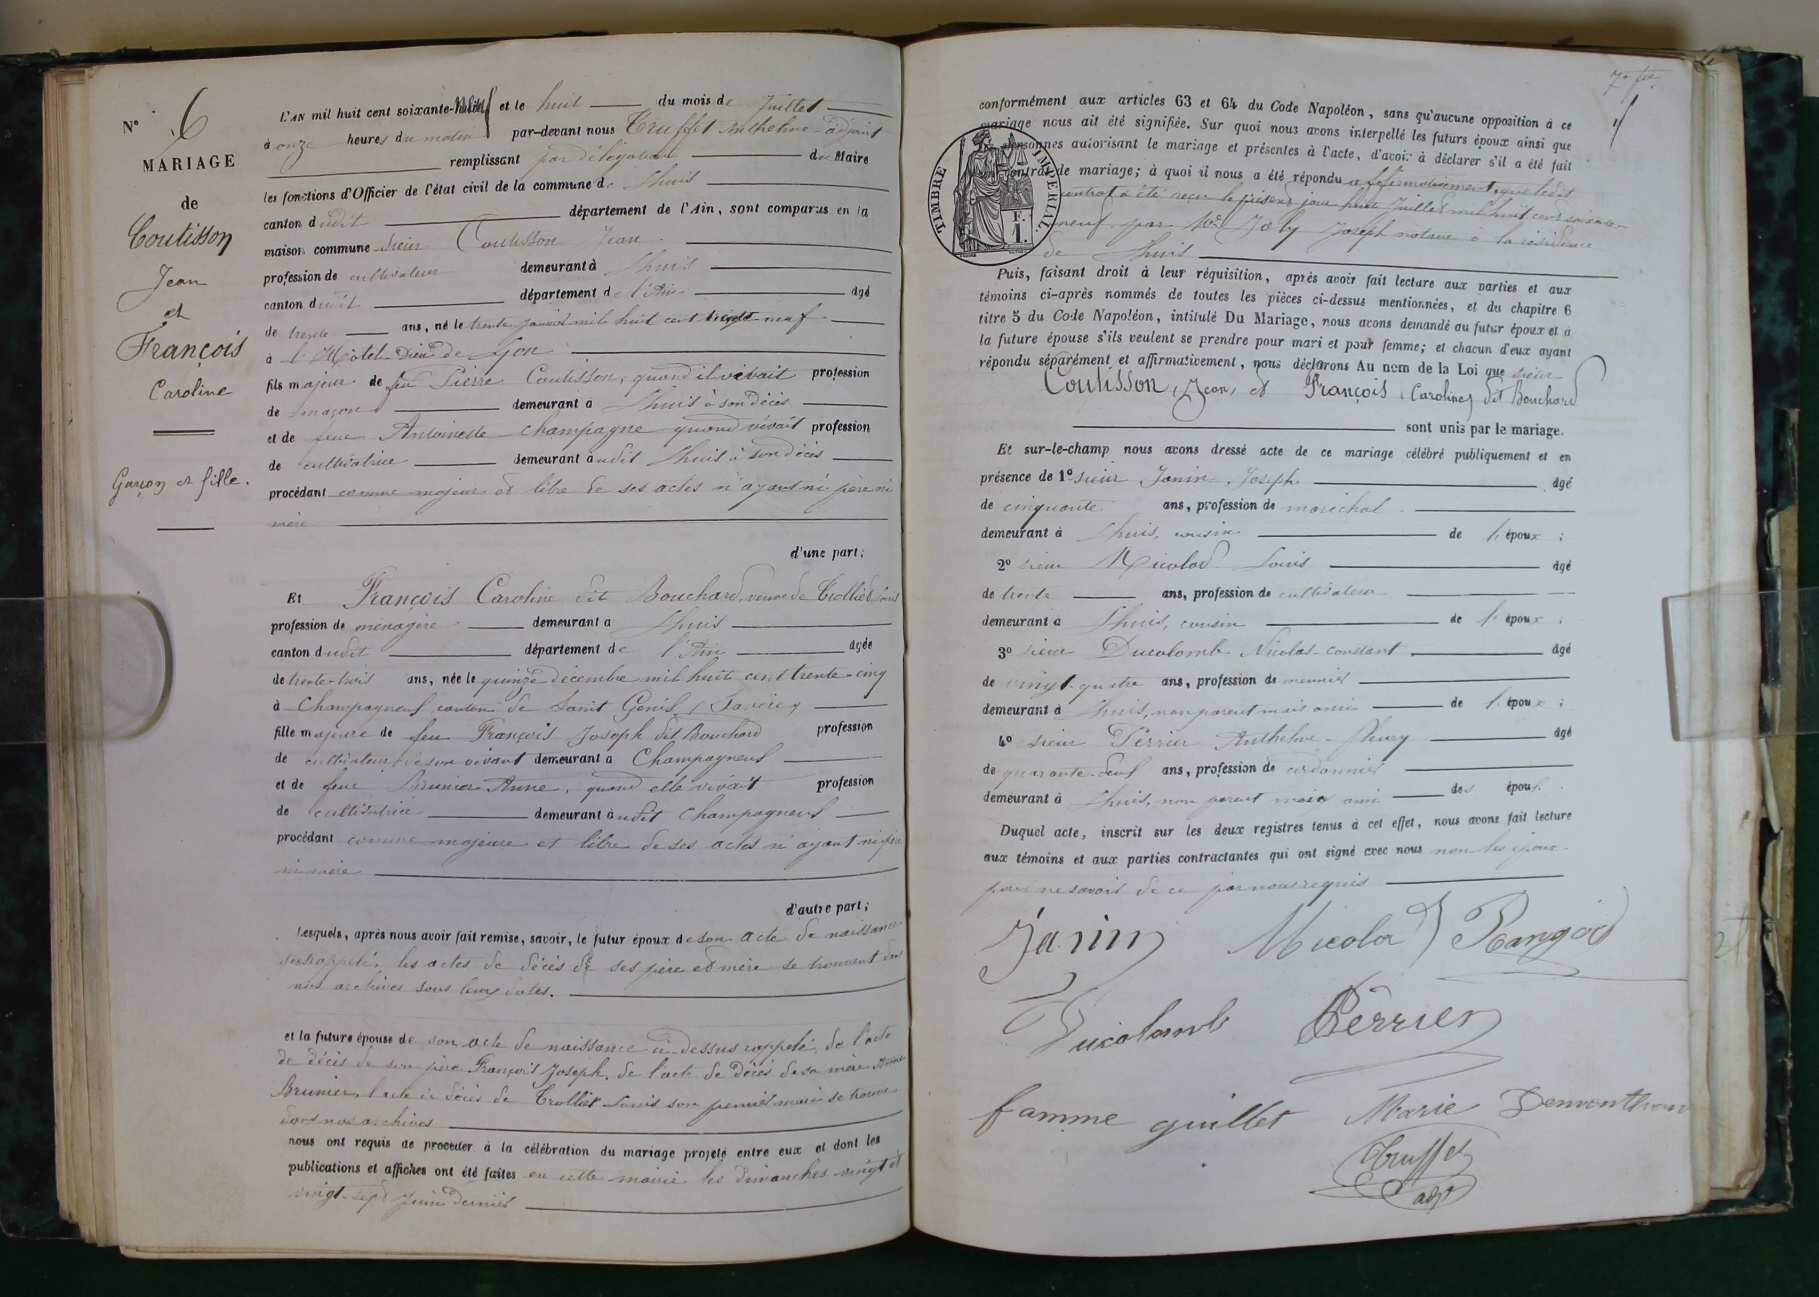 N° 6
MARIAGE
de
Coutisson
Jean
et
François
Caroline
Garçon et fille.
L'AN mil huit cent soixante-neuf et le huit du mois de Juillet
à onze heures du matin par-devant nous Truffet Anthelme adjoint
remplissant par délégation du Maire
les fonctions d'Officier de l'état civil de la commune de Lhuis
canton dudit département de l'Ain, sont comparus en la
maison commune sieur Coutisson Jean
profession de cultivateur demeurant à Lhuis
canton dudit département de l'Ain âgé
de trente ans, né le trente Janvier mil huit cent trente-neuf
à l'Hôtel-Dieu de Lyon
fils majeur de feu Pierre Coutisson, quand il vivait profession
de maçon demeurant à Lhuis à son décès
et de feue Antoinette Champagne quand vivait profession
de cultivatrice demeurant audit Lhuis à son décès
procédant comme majeur et libre de ses actes n'ayant ni père ni
mère
d'une part;
Et François Caroline dit Bouchard, veuve de Trolliet Louis
profession de ménagère demeurant à Lhuis
canton dudit département de l'Ain âgée
de trente-trois ans, née le quinze décembre mil huit cent trente-cinq
à Champagneux canton de Saint Genix (Savoie)
fille majeure de feu François Joseph dit Bouchard profession
de cultivateur de son vivant demeurant à Champagneux
et de feue Brunier Anne, quand elle vivait profession
de cultivatrice demeurant audit Champagneux
procédant comme majeure et libre de ses actes n'ayant ni père
ni mère
d'autre part;
Lesquels, après nous avoir fait remise, savoir, le futur époux de son acte de naissance
susrappelé, les actes de décès de ses père et mère se trouvent dans
nos archives sous leurs dates.
et la future épouse de son acte de naissance ci-dessus rappelé, de l'acte
de décès de son père François Joseph, de l'acte de décès de sa mère Anne
Brunier, l'acte de décès de Trolliet Louis son premier mari se trouve
dans nos archives
nous ont requis de procéder à la célébration du mariage projeté entre eux et dont les
publications et affiches ont été faites en cette mairie les Dimanches vingt et
vingt-sept Juin dernier
conformément aux articles 63 et 64 du Code Napoléon, sans qu'aucune opposition à ce
mariage nous ait été signifiée. Sur quoi nous avons interpellé les futurs époux ainsi que
les personnes autorisant le mariage et présentes à l'acte, d'avoir à déclarer s'il a été fait
contrat de mariage; à quoi il nous a été répondu affirmativement, que ledit
contrat a été reçu le présent jour huit Juillet mil huit cent soixante-
neuf par Me Joly Joseph notaire à la résidence
de Lhuis
TIMBRE IMPÉRIAL.
Puis, faisant droit à leur réquisition, après avoir fait lecture aux parties et aux
témoins ci-après nommés de toutes les pièces ci-dessus mentionnées, et du chapitre 6
titre 5 du Code Napoléon, intitulé Du Mariage, nous avons demandé au futur époux et à
la future épouse s'ils veulent se prendre pour mari et pour femme; et chacun d'eux ayant
répondu séparément et affirmativement, nous déclarons Au nom de la Loi que sieur
Coutisson, Jean, et François, Caroline, dit Bouchard
sont unis par le mariage.
Et sur-le-champ nous avons dressé acte de ce mariage célébré publiquement et en
présence de 1° sieur Janin, Joseph âgé
de cinquante ans, profession de maréchal
demeurant à Lhuis, cousin de l'époux;
2° sieur Micolod Louis âgé
de trente ans, profession de cultivateur
demeurant à Lhuis, cousin de l'époux;
3° sieur Ducolomb Nicolas-constant âgé
de vingt-quatre ans, profession de meunier
demeurant à Lhuis, non parent mais ami de l'époux;
4° sieur Perrier Anthelme-fleury âgé
de quarante-deux ans, profession de cordonnier
demeurant à Lhuis, non parent mais ami des époux.
Duquel acte, inscrit sur les deux registres tenus à cet effet, nous avons fait lecture
aux témoins et aux parties contractantes qui ont signé avec nous non les époux
pour ne savoir de ce par nous requis
Janin Micolod Rangod
Ducolomb Perrier
famme guillet Marie Demonthon
Truffet
adjt